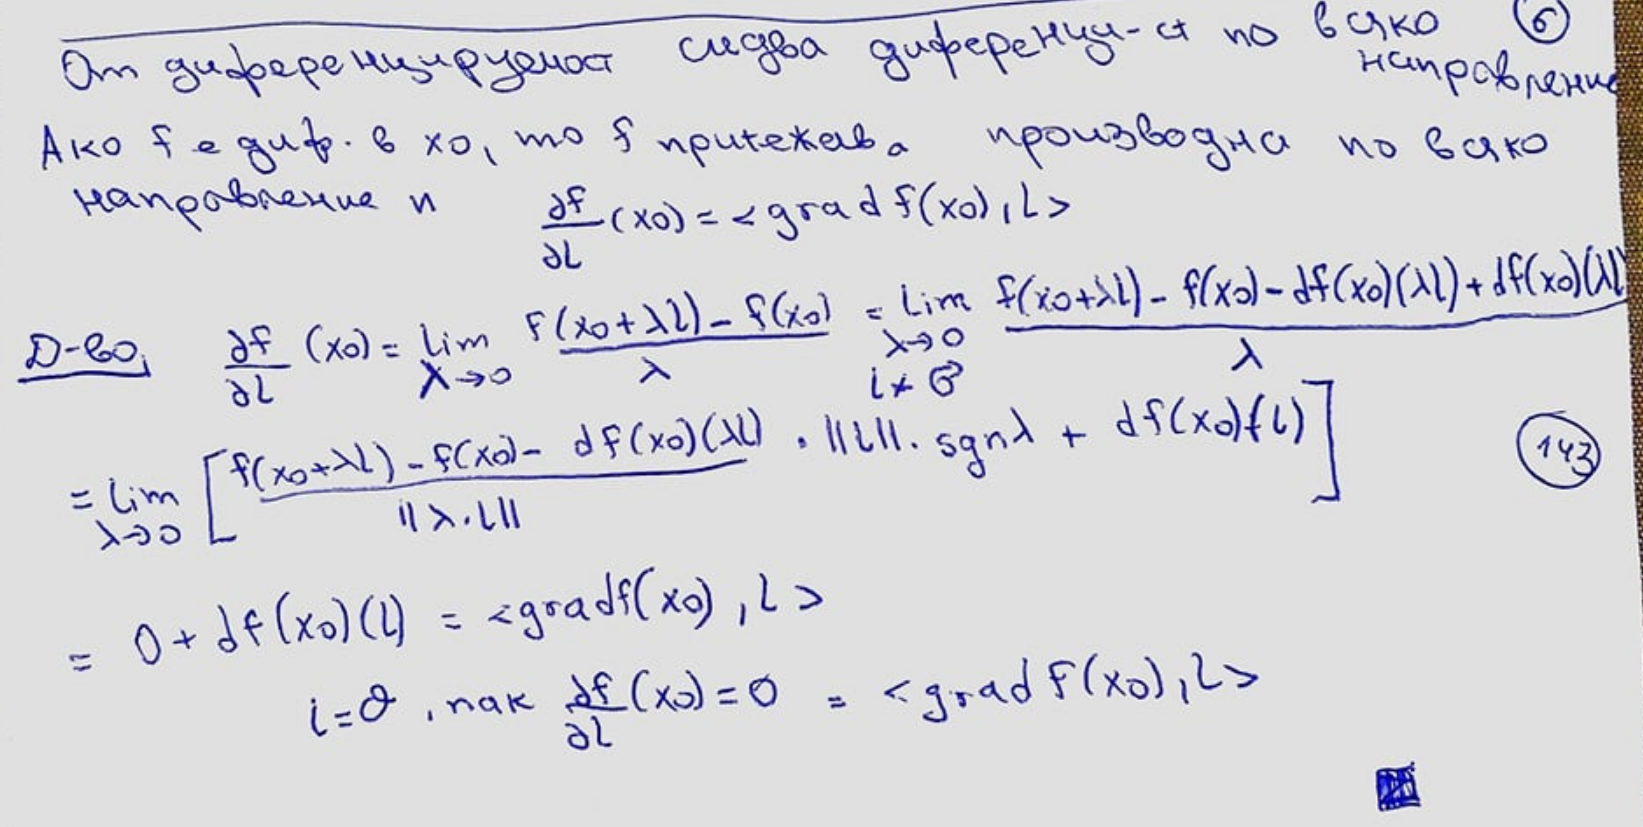 От диференцируемост следва диференци-ст по всяко ⑥
направление
Ако f е диф. в x₀, то f притежава производна по всяко
направление и ∂f/∂l (x₀) = <grad f(x₀), l>
Д-во, ∂f/∂l (x₀) = lim_{λ→0} (f(x₀+λl) - f(x₀))/λ = lim_{λ→0, l≠θ} (f(x₀+λl) - f(x₀) - df(x₀)(λl) + df(x₀)(λl))/λ
= lim_{λ→0} [(f(x₀+λl) - f(x₀) - df(x₀)(λl))/||λ.l|| . ||l||. sgnλ + df(x₀)(l)]
143
= 0 + df(x₀)(l) = <grad f(x₀), l>
l=θ, пак ∂f/∂l (x₀) = 0 = <grad f(x₀), l>